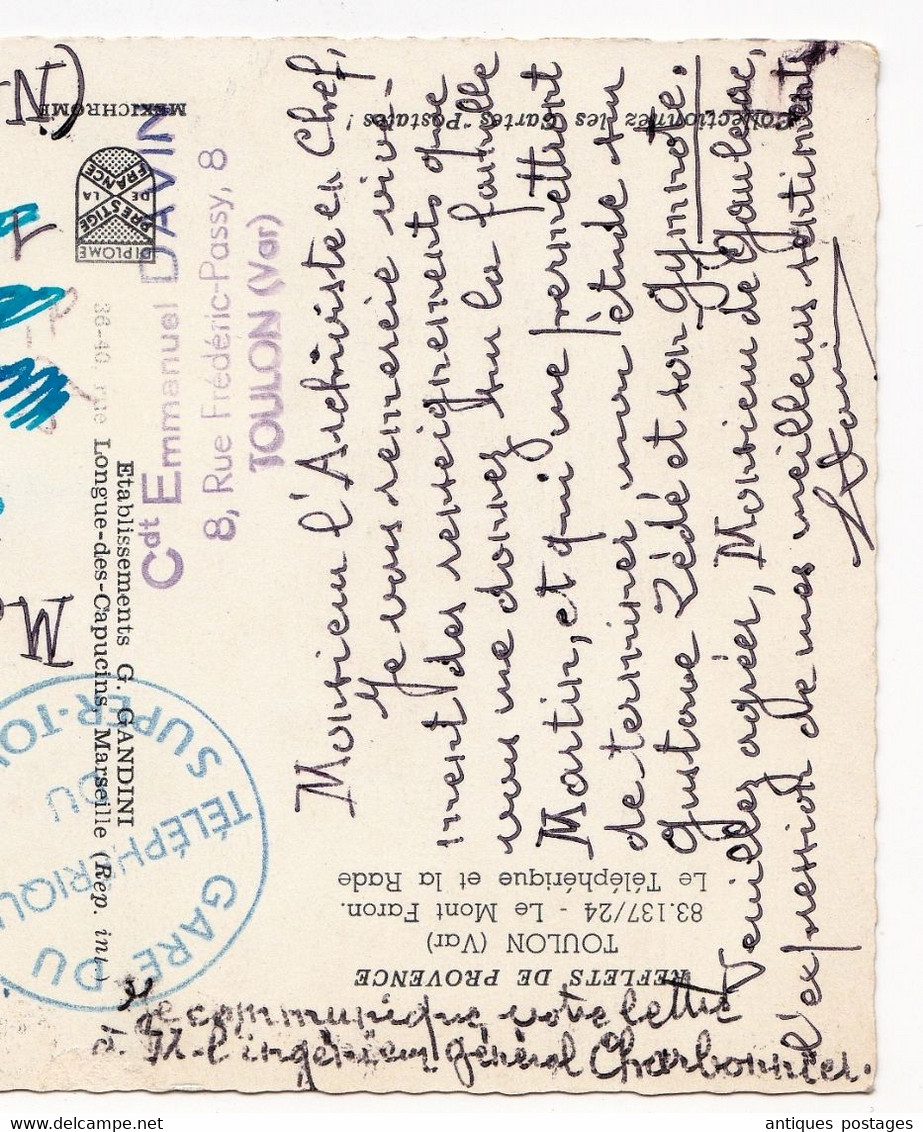 Monsieur l'Archiviste en Chef,
Je vous remercie vive-
ment des renseignements que
vous me donnez sur la famille
Martin, et qui me permettront
de terminer mon étude su
Gustave Zédé et son Gymnote.
Veuillez agréer, Monsieur de Gaulejac,
l'expression de mes meilleurs sentiments
Je communique votre lettre
à M. l'ingénieur général Charbonnier.
Cpt Emmanuel DAVIN
8, Rue Frédéric-Passy, 8
TOULON (Var)
REFLETS DE PROVENCE
TOULON (Var)
83.137/24 - Le Mont Faron.
Le Téléphérique et la Rade
Collectionnez les Cartes Postales !
MEXICHROME
DIPLOME
PRESTIGE
DE LA
FRANCE
Etablissements G. GANDINI
36-40, rue Longue-des-Capucins, Marseille (Rep. int)
GARE DU
TÉLÉPHÉRIQU
DU
SUPER-TO
M
(N
antiques postages
delcampe.net